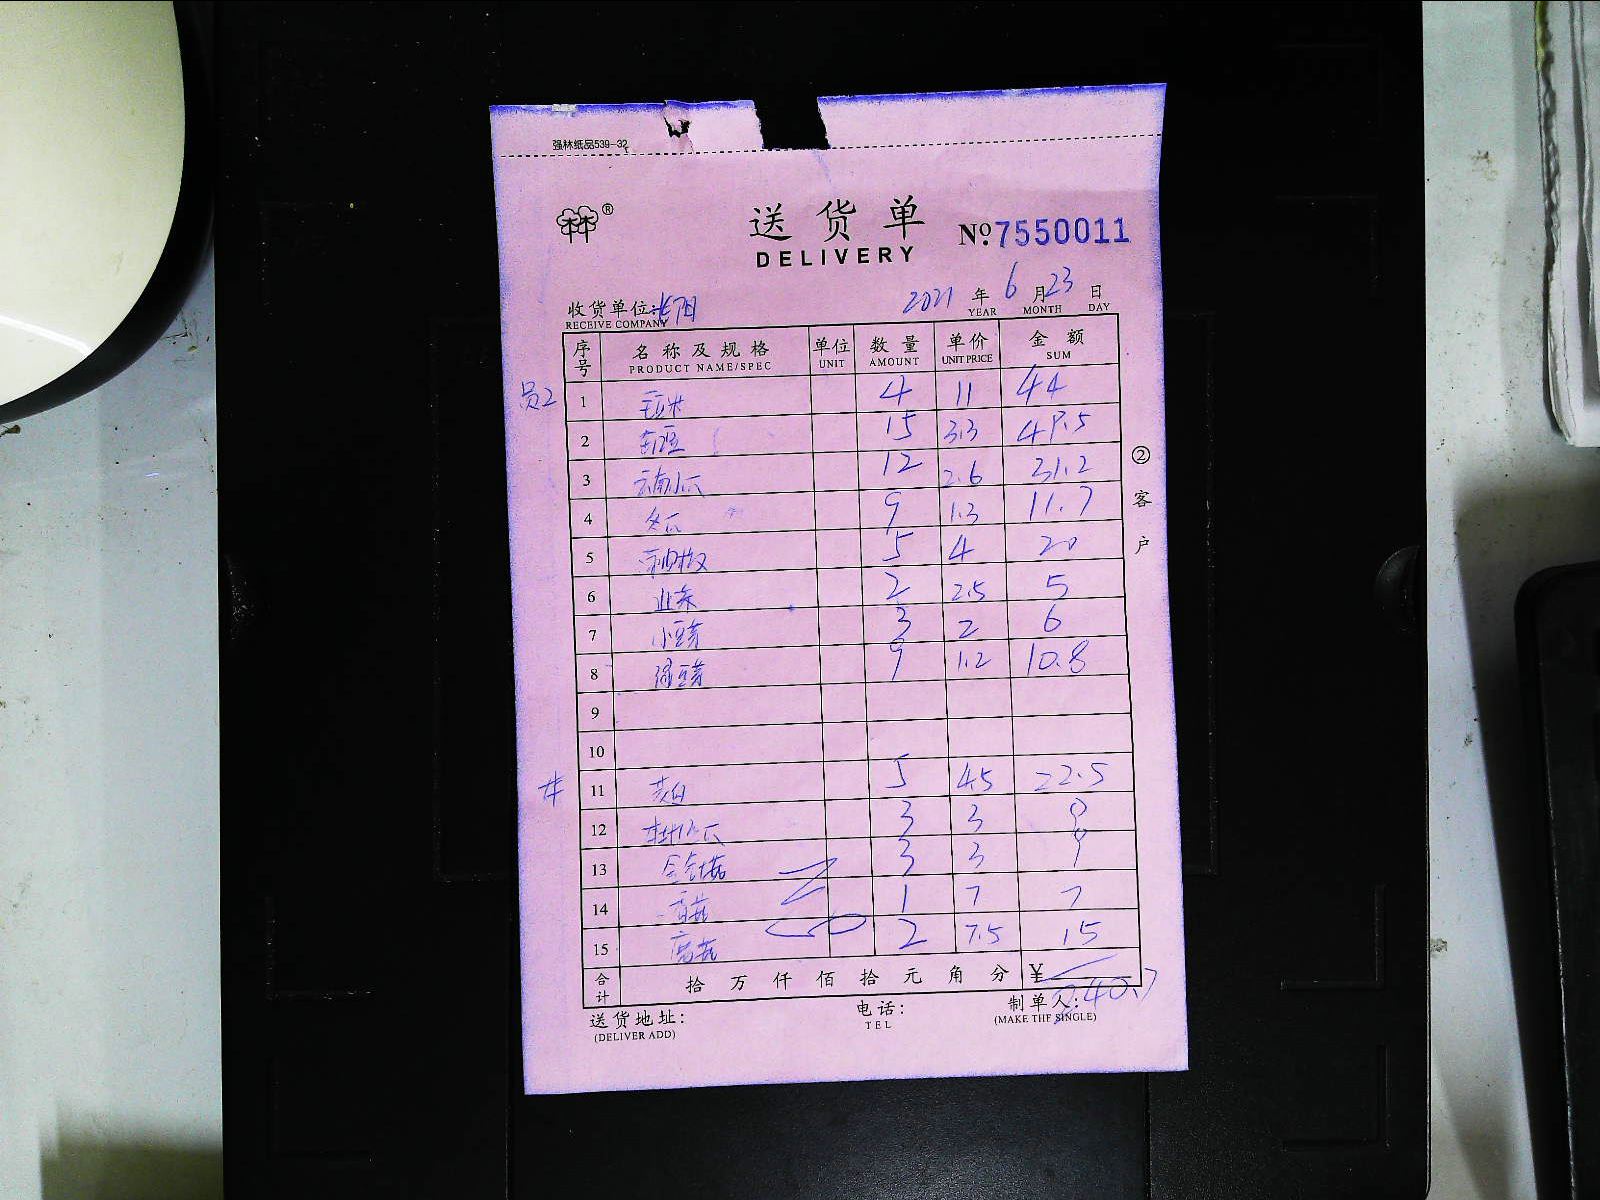 强林纸品539-32
®
送货单 No.7550011
DELIVERY
收货单位: 2021 年 6 月 23 日
RECEIVE COMPANY YEAR MONTH DAY
序号 名称及规格 单位 数量 单价 金额
PRODUCT NAME/SPEC UNIT AMOUNT UNIT PRICE SUM
员工 1 玉米 4 11 44
2 15 3.3 49.5
3 云南小瓜 12 2.6 31.2
4 冬瓜 9 1.3 11.7
5 5 4 20
6 2 2.5 5
7 小豆芽 3 2 6
8 绿豆芽 9 1.2 10.8
9
10
11 茭白 5 4.5 22.5
12 3 3 9
13 金针菇 3 3 9
14 香菇 1 7 7
15 2 7.5 15
合计 拾万仟佰拾元角分 ¥ 240.7
送货地址: 电话: 制单人:
(DELIVER ADD) TEL (MAKE THE SINGLE)
②客户